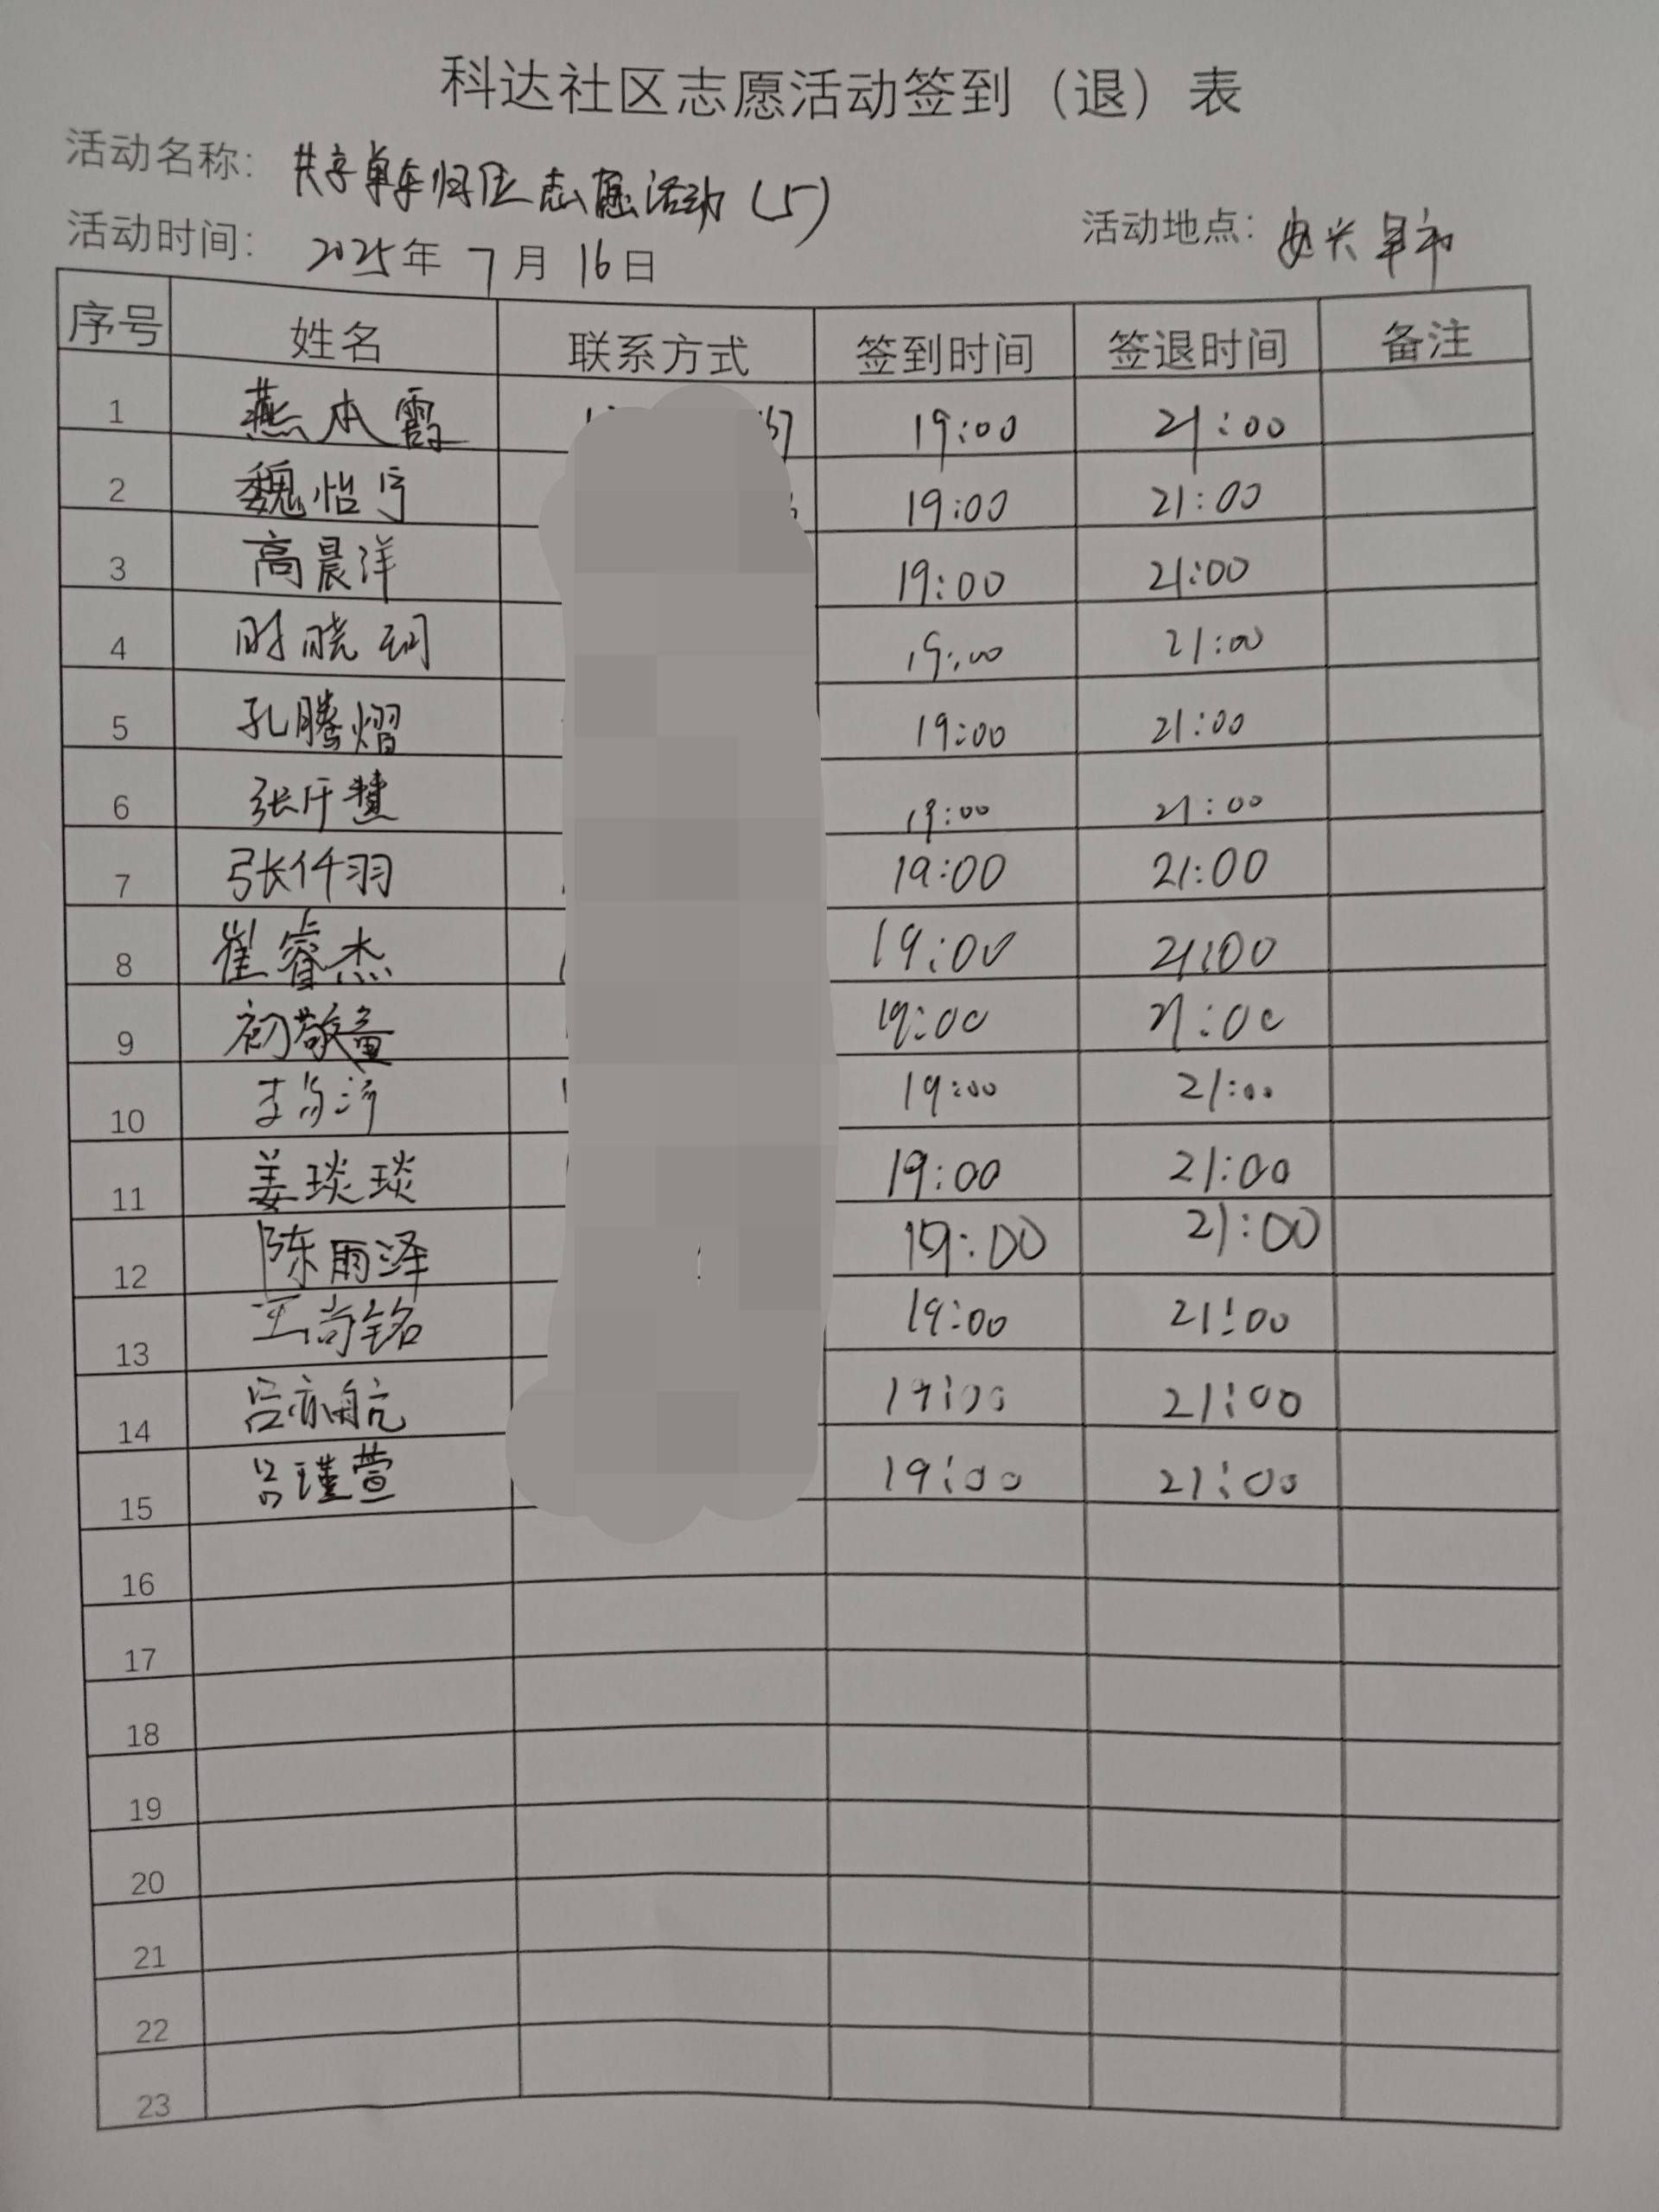 科达社区志愿活动签到（退）表
活动名称：共享单车归位志愿活动（5）
活动时间：2025年7月16日 活动地点：安兴早市
序号 姓名 联系方式 签到时间 签退时间 备注
1 燕本霞 67 19:00 21:00
2 魏怡宁 19:00 21:00
3 高晨洋 19:00 21:00
4 时晓玥 19:00 21:00
5 孔腾熠 19:00 21:00
6 张仟慧 19:00 21:00
7 张仟羽 19:00 21:00
8 崔睿杰 19:00 21:00
9 初敬 19:00 21:00
10 19:00 21:00
11 姜琰琰 19:00 21:00
12 陈雨泽 19:00 21:00
13 王尚铭 19:00 21:00
14 吕亦航 19:00 21:00
15 吕瑾萱 19:00 21:00
16
17
18
19
20
21
22
23